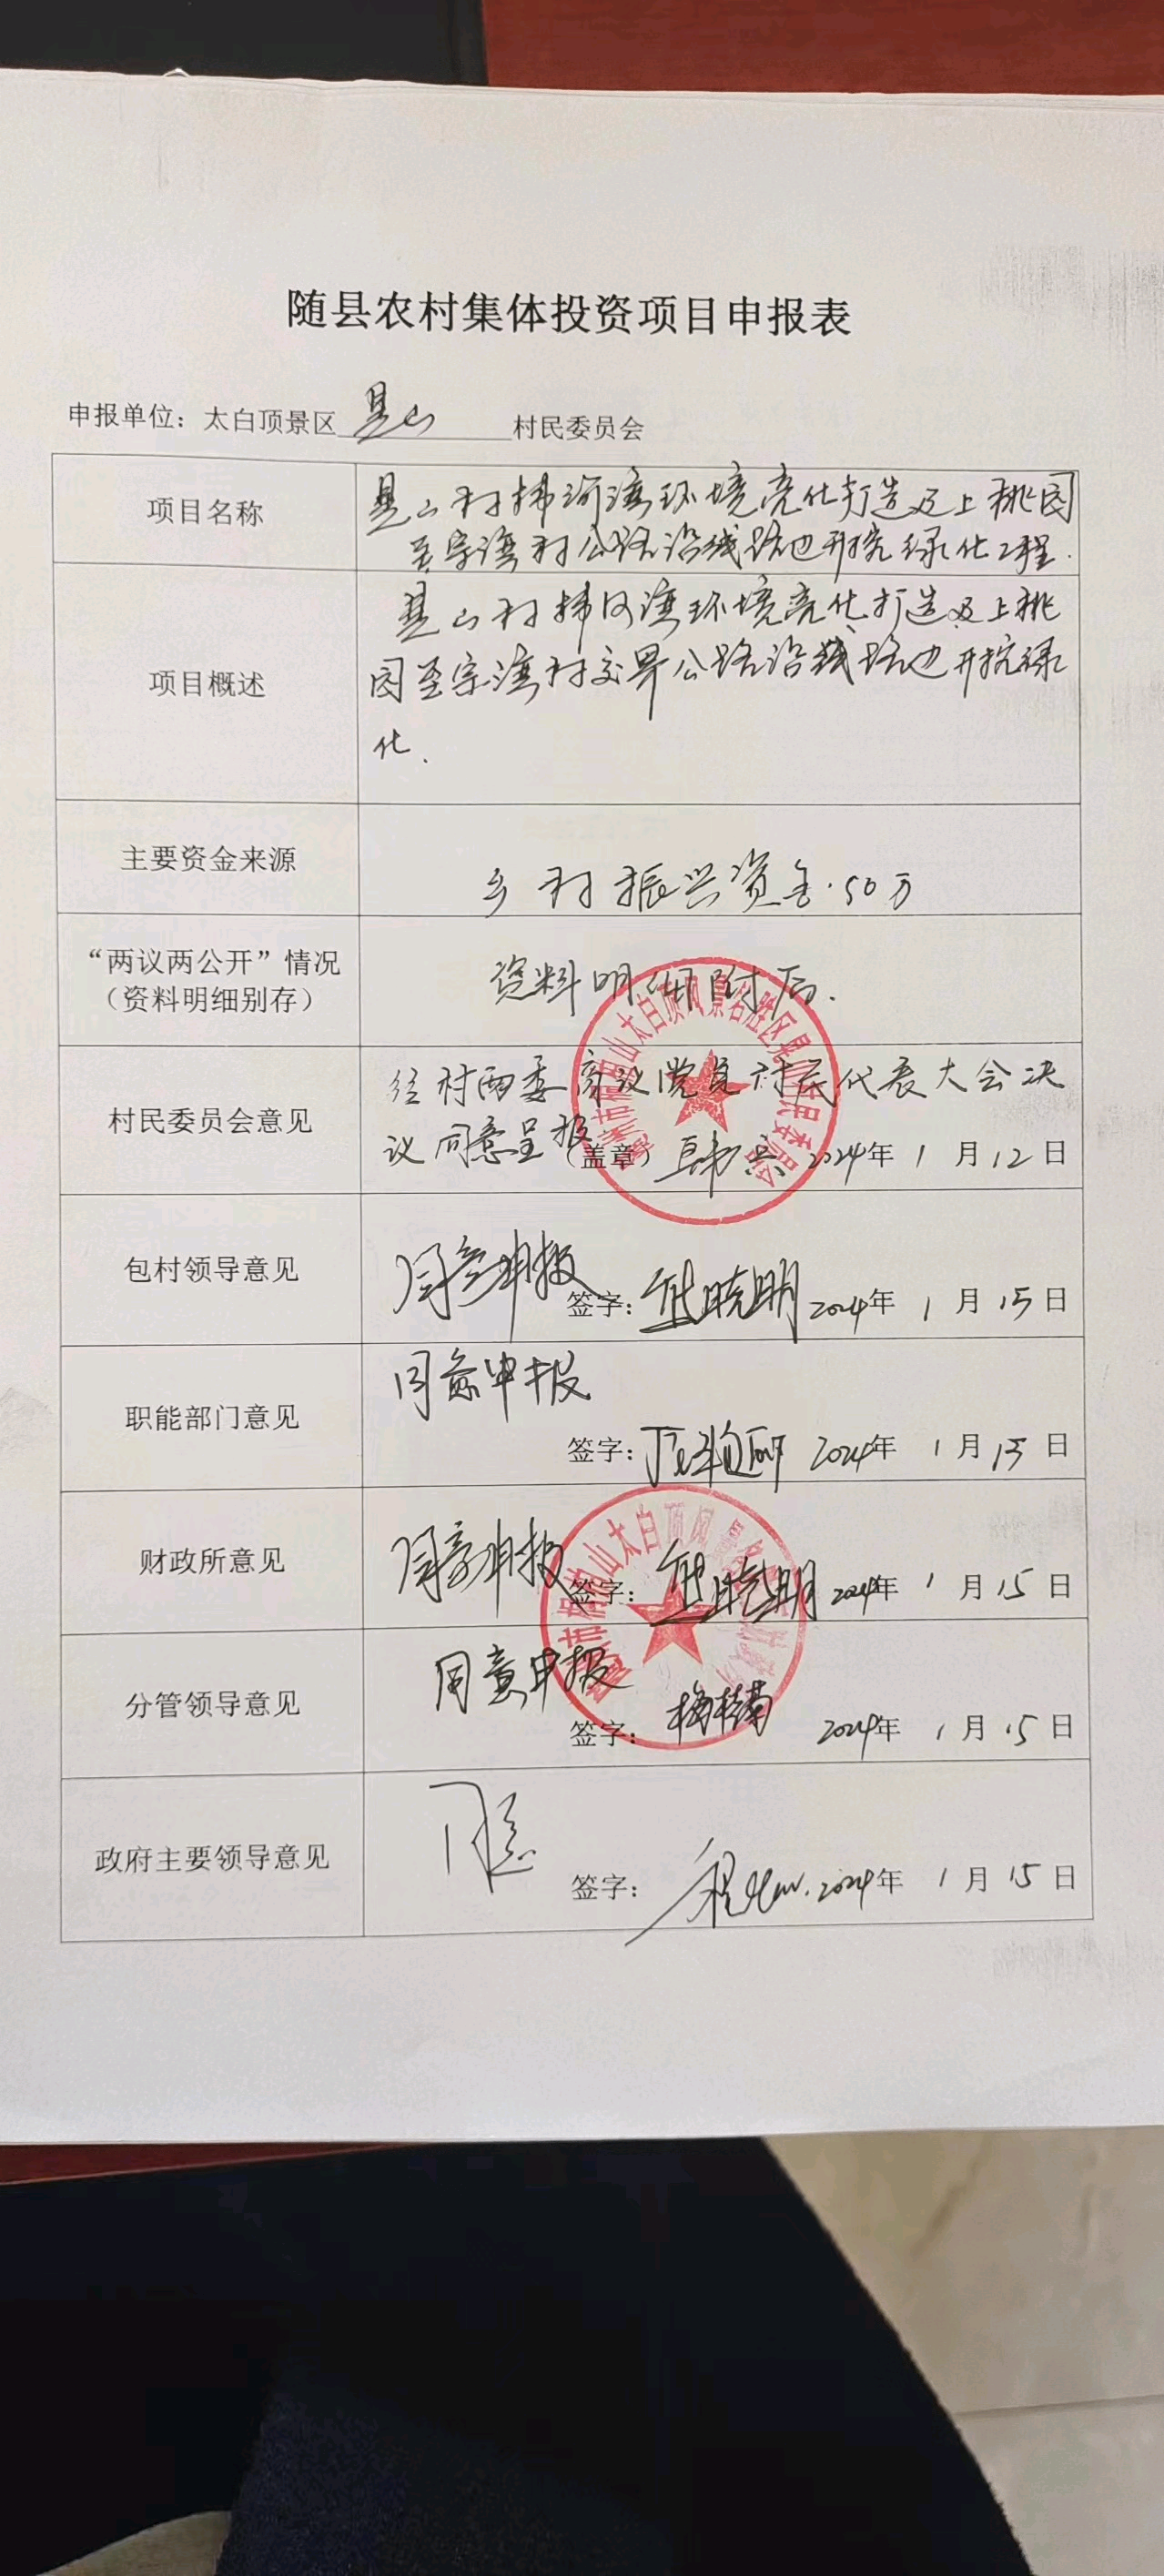 随县农村集体投资项目申报表
申报单位：太白顶景区 昆山 村民委员会
项目名称
山村 湾环境亮化打造及上桃园
至宗湾村公路沿线路边开挖绿化工程.
项目概述
山村 湾环境亮化打造及上桃
园至宗湾村交界公路沿线路边开挖绿
化.
主要资金来源
乡村振兴资金.50万
“两议两公开”情况
（资料明细别存）
资料明细附后.
村民委员会意见
经村两委商议党员村民代表大会决
议同意呈报
（盖章） 2024年 1 月 12 日
包村领导意见
同意申报
签字： 熊晓明 2024年 1 月 15 日
职能部门意见
同意申报
签字： 2024年 1 月 15 日
财政所意见
同意申报
签字： 熊晓明 2024年 1 月 15 日
分管领导意见
同意申报
签字： 2024年 1 月 15 日
政府主要领导意见
同意
签字： 2024年 1 月 15 日